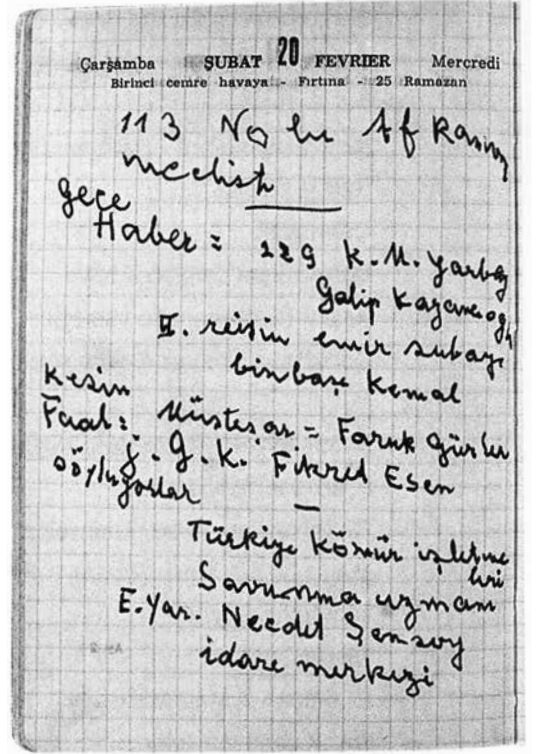 Çarşamba ŞUBAT 20 FEVRIER Mercredi
Birinci cemre havaya - Fırtına - 25 Ramazan
113 No lu Af Kanunu
mecliste
Geçe
Haber = 229 K. M. Yarbay
Galip
II. reisin emir subayı
binbaşı Kemal
Kesin
Faal: Müsteşar = Faruk Gürler
J. G. K. Fikret Esen
söylüyorlar
Türkiye kömür işletme
leri
Savunma uzmanı
E. Yar. Necdet Şensoy
idare merkezi